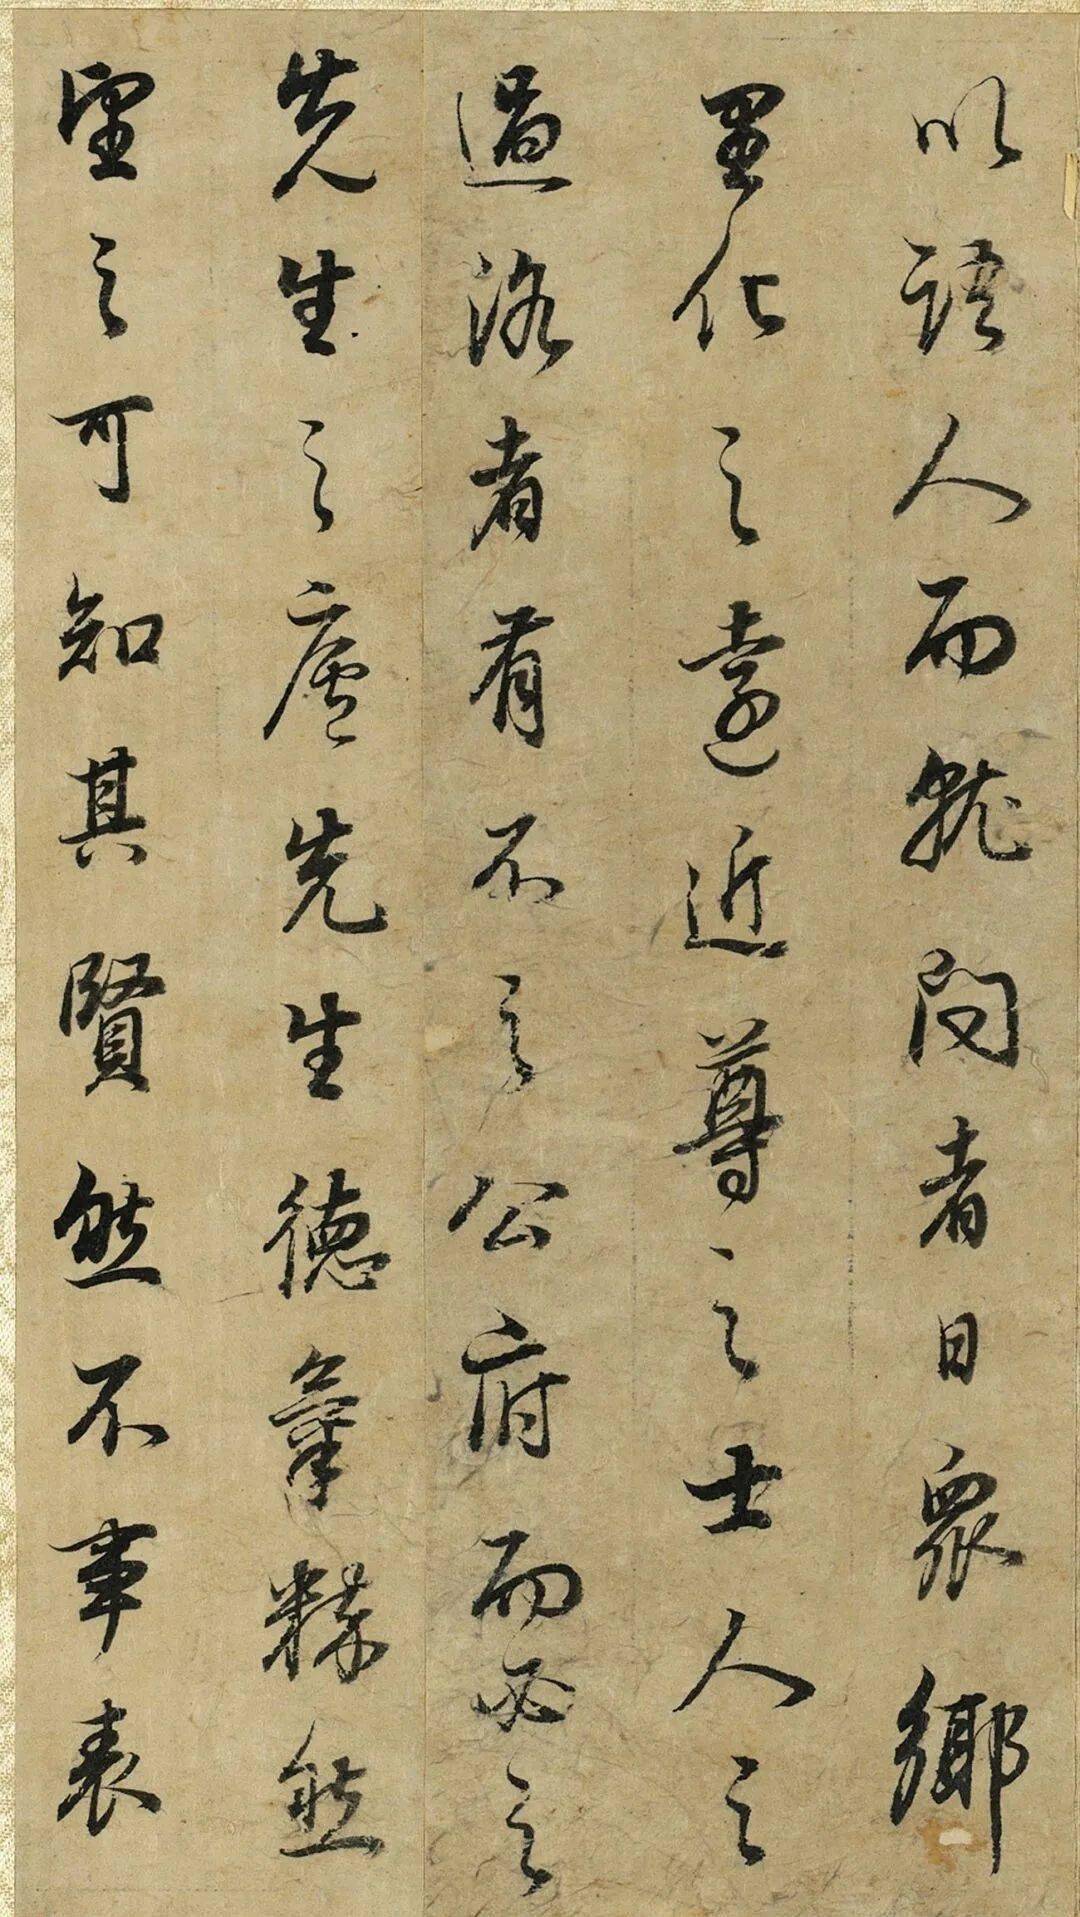 以語人而就問者日衆鄉
里化之遠近尊之士人之
過洛者有不之公府而必之
先生之廬先生德氣粹然
望之可知其賢然不事表